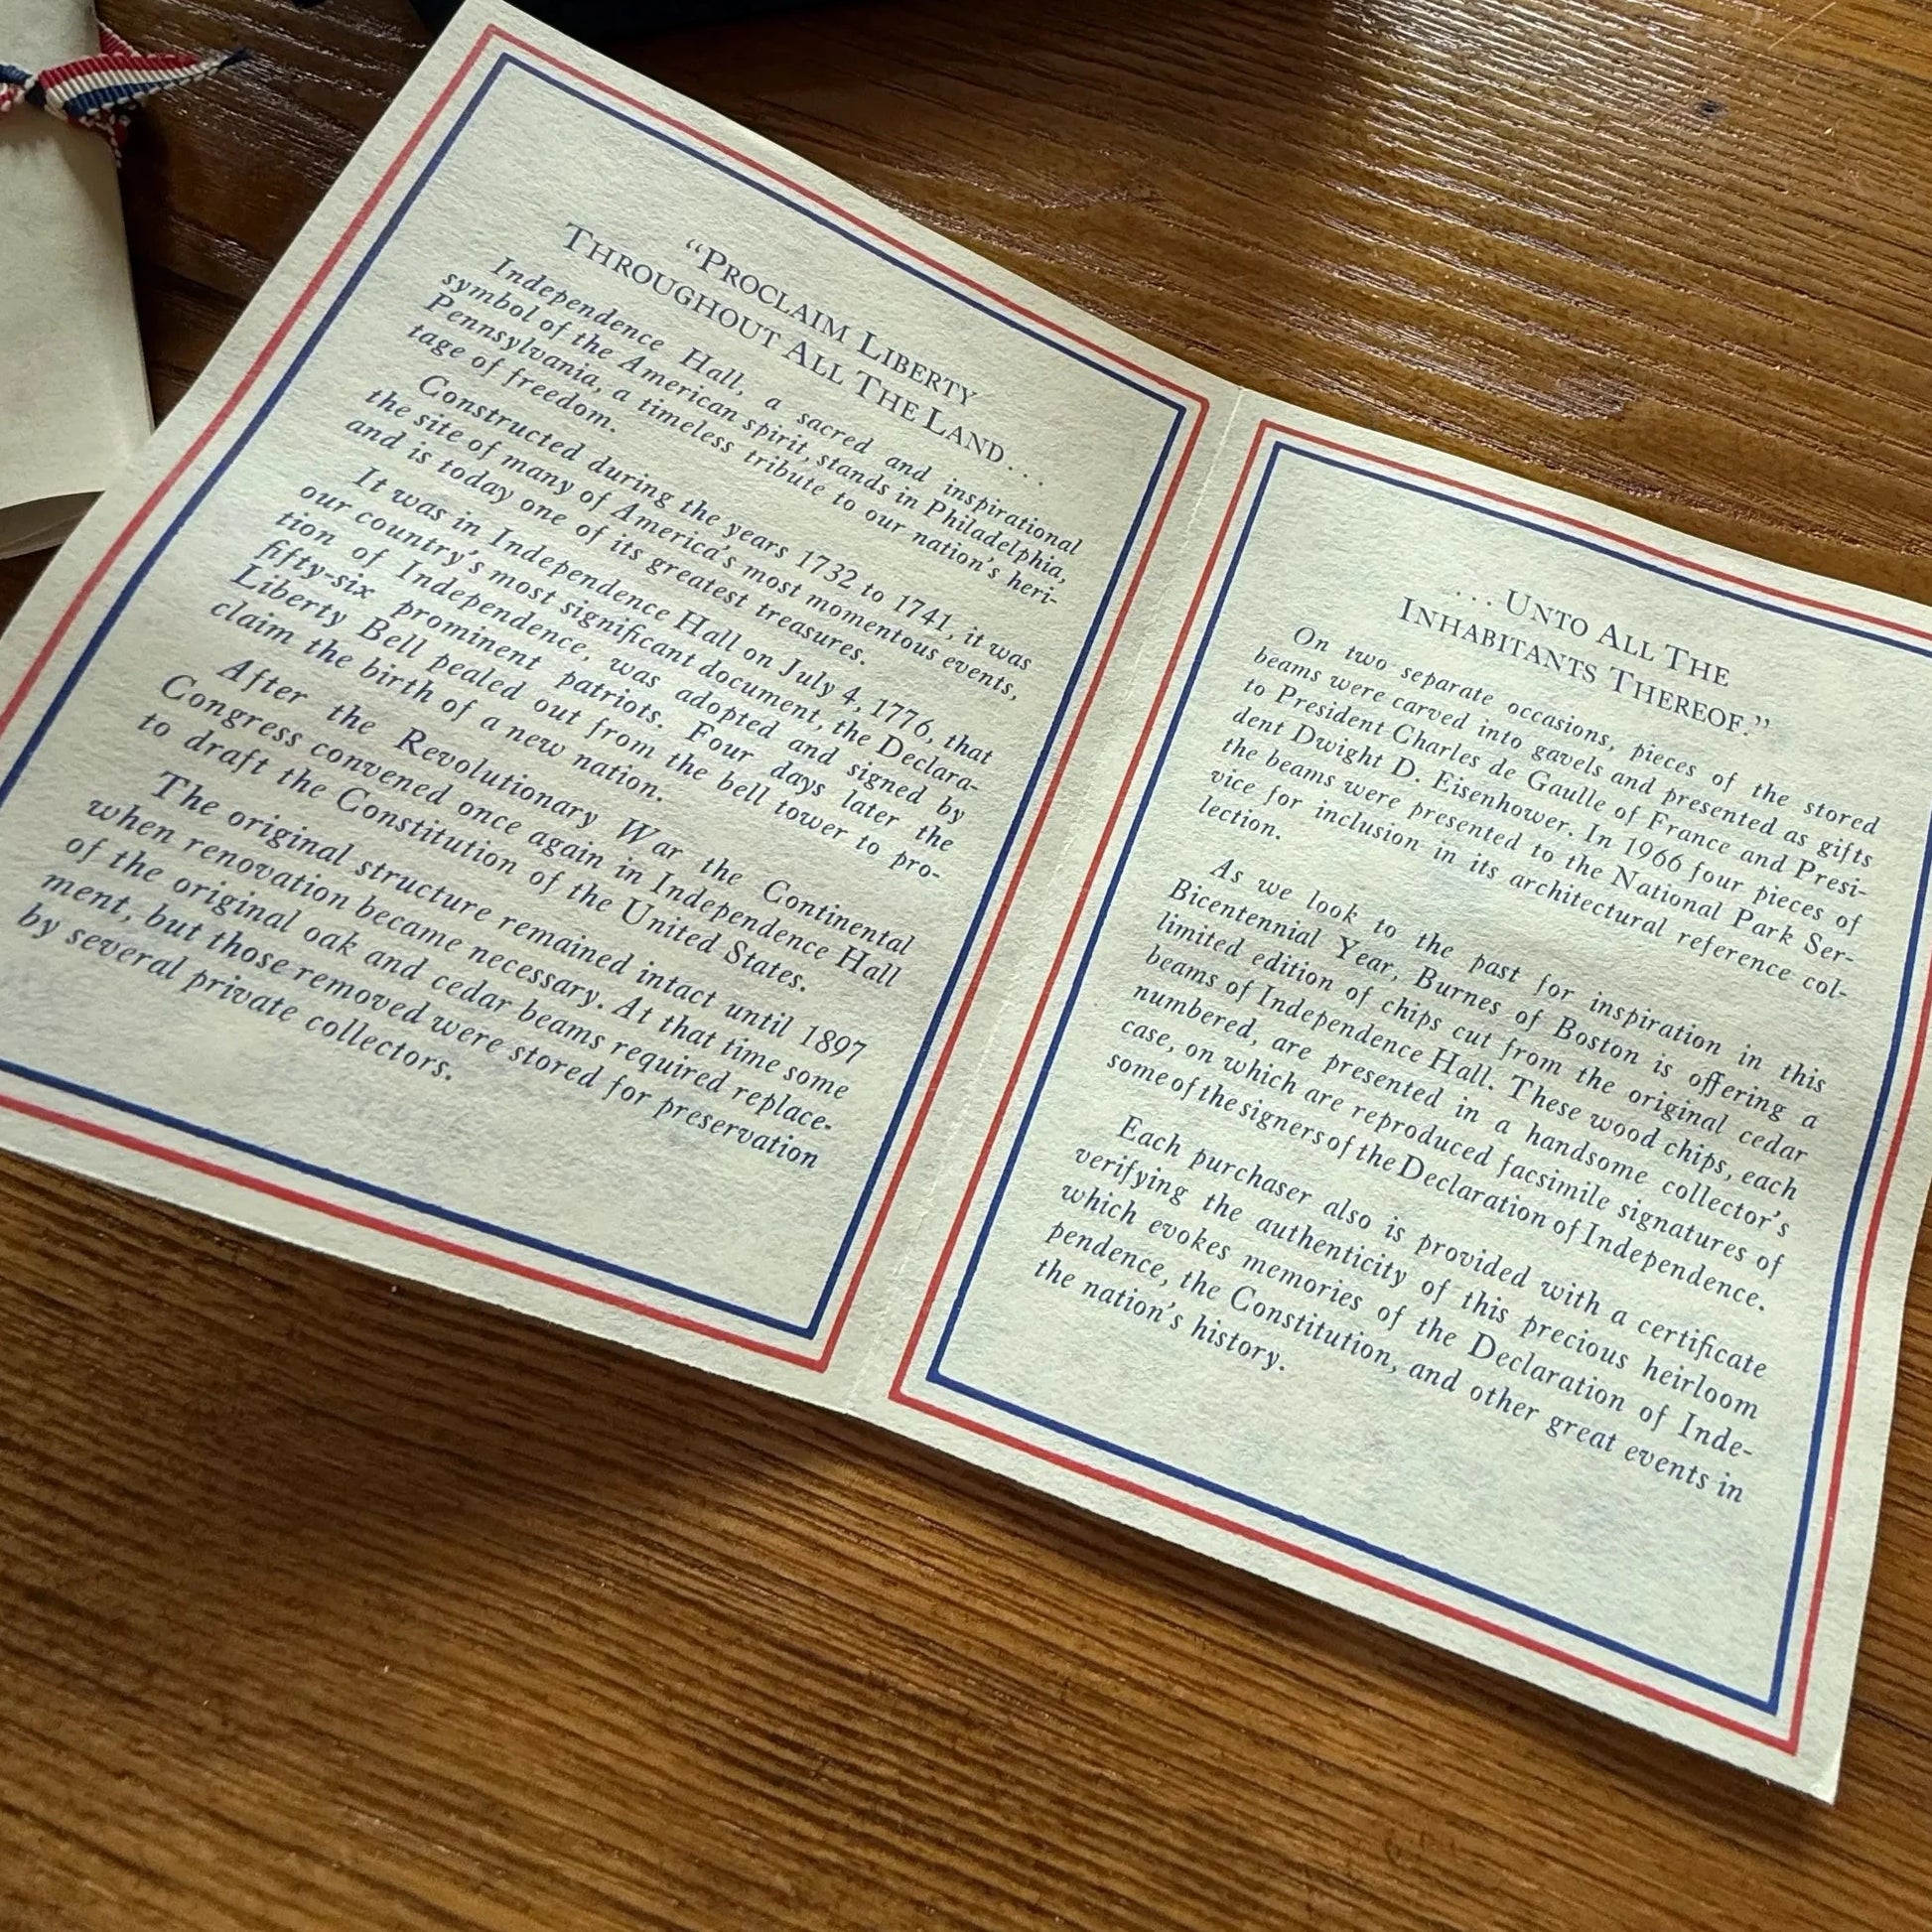 "PROCLAIM LIBERTY
THROUGHOUT ALL THE LAND...
Independence Hall, a sacred and inspirational
symbol of the American spirit, stands in Philadelphia,
Pennsylvania, a timeless tribute to our nation's heri-
tage of freedom.
Constructed during the years 1732 to 1741, it was
the site of many of America's most momentous events,
and is today one of its greatest treasures.
It was in Independence Hall on July 4, 1776, that
our country's most significant document, the Declara-
tion of Independence, was adopted and signed by
fifty-six prominent patriots. Four days later the
Liberty Bell pealed out from the bell tower to pro-
claim the birth of a new nation.
After the Revolutionary War the Continental
Congress convened once again in Independence Hall
to draft the Constitution of the United States.
The original structure remained intact until 1897
when renovation became necessary. At that time some
of the original oak and cedar beams required replace-
ment, but those removed were stored for preservation
by several private collectors.
...UNTO ALL THE
INHABITANTS THEREOF."
On two separate occasions, pieces of the stored
beams were carved into gavels and presented as gifts
to President Charles de Gaulle of France and Presi-
dent Dwight D. Eisenhower. In 1966 four pieces of
the beams were presented to the National Park Ser-
vice for inclusion in its architectural reference col-
lection.
As we look to the past for inspiration in this
Bicentennial Year, Burnes of Boston is offering a
limited edition of chips cut from the original cedar
beams of Independence Hall. These wood chips, each
numbered, are presented in a handsome collector's
case, on which are reproduced facsimile signatures of
some of the signers of the Declaration of Independence.
Each purchaser also is provided with a certificate
verifying the authenticity of this precious heirloom
which evokes memories of the Declaration of Inde-
pendence, the Constitution, and other great events in
the nation's history.